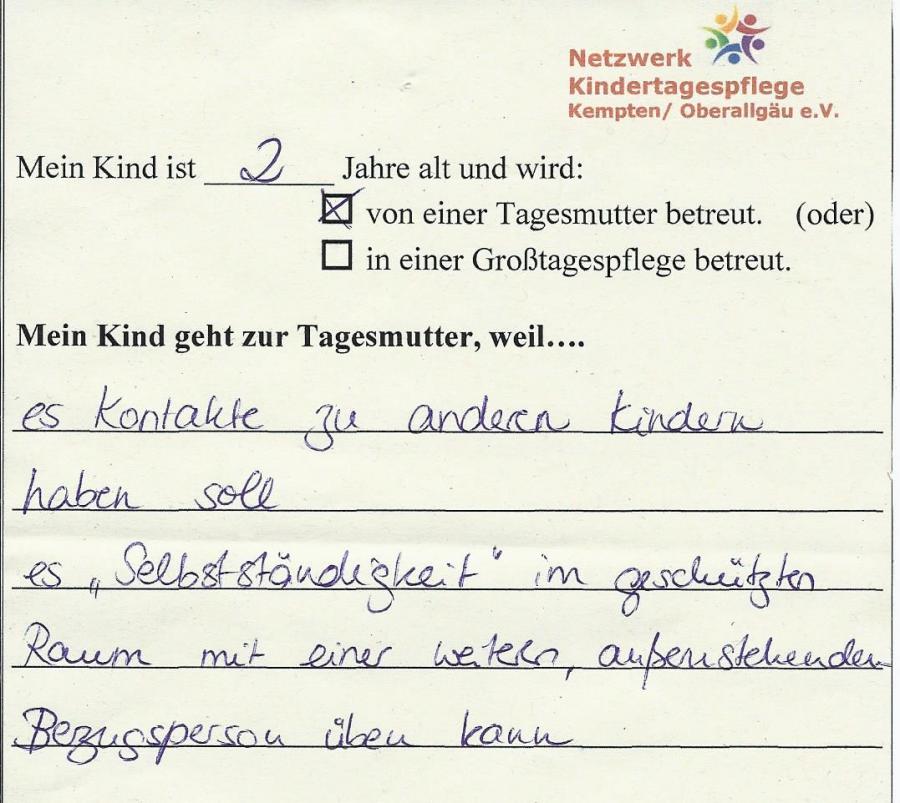 Netzwerk
Kindertagespflege
Kempten/ Oberallgäu e.V.
Mein Kind ist 2 Jahre alt und wird:
☒ von einer Tagesmutter betreut. (oder)
☐ in einer Großtagespflege betreut.
Mein Kind geht zur Tagesmutter, weil....
es Kontakte zu anderen Kindern
haben soll
es „Selbstständigkeit" im geschützten
Raum mit einer weitern, außenstehenden
Bezugsperson üben kann